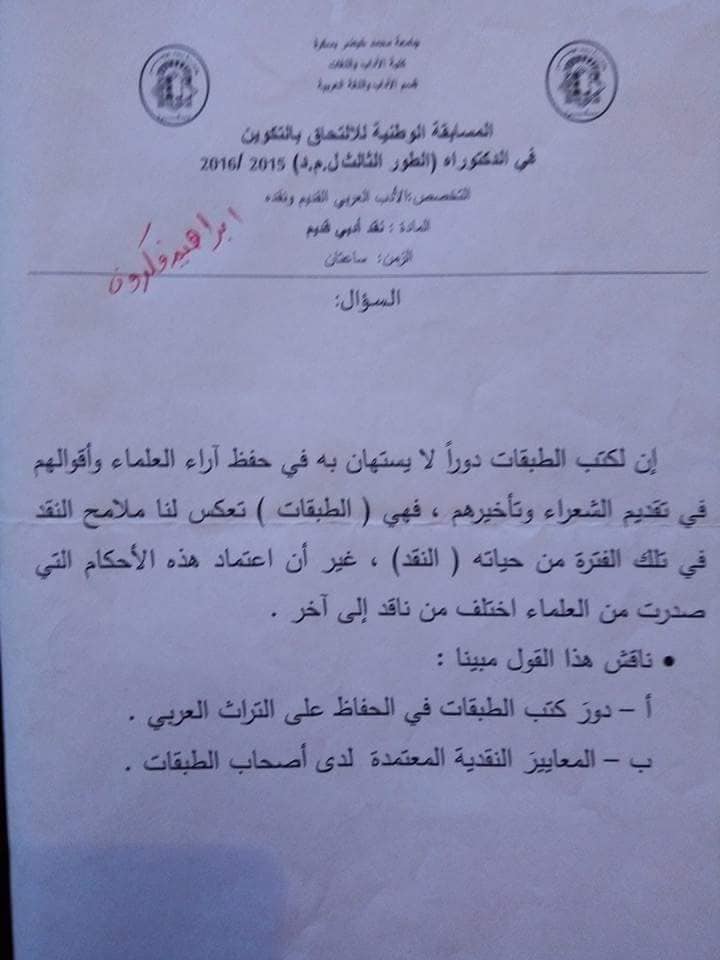 جامعة محمد خيضر بسكرة
كلية الآداب واللغات
قسم الآداب واللغة العربية
المسابقة الوطنية للالتحاق بالتكوين
في الدكتوراه (الطور الثالث ل.م.د) 2015 /2016
التخصص:الأدب العربي القديم ونقده
المادة : نقد أدبي قديم
الزمن: ساعتان
السؤال:
إن لكتب الطبقات دوراً لا يستهان به في حفظ آراء العلماء وأقوالهم
في تقديم الشعراء وتأخيرهم ، فهي ( الطبقات ) تعكس لنا ملامح النقد
في تلك الفترة من حياته ( النقد) ، غير أن اعتماد هذه الأحكام التي
صدرت من العلماء اختلف من ناقد إلى آخر .
• ناقش هذا القول مبينا :
أ – دورَ كتب الطبقات في الحفاظ على التراث العربي .
ب – المعاييرَ النقدية المعتمدة لدى أصحاب الطبقات .